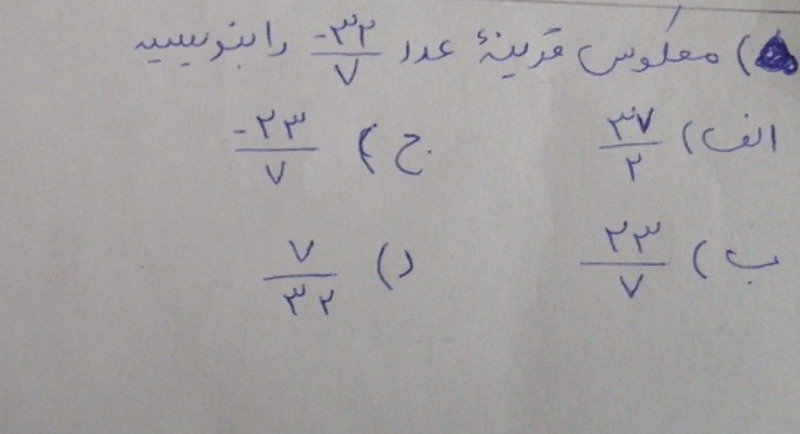 ) معکوس قرینهٔ عدد -۳۲/۷ را بنویسید
الف) ۳۷/۲ ج) -۲۳/۷
ب) ۲۳/۷ د) ۷/۳۲